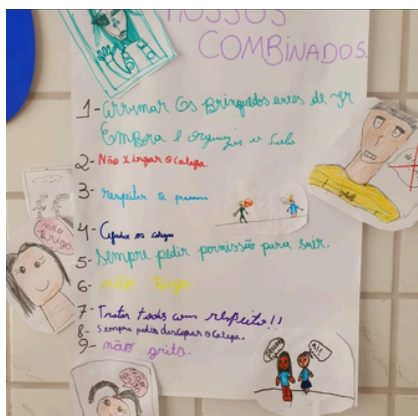 NOSSOS
COMBINADOS.
1- Arrumar Os Brinquedos antes de -Ir
Embora e organizar a sala
2- Não Xingar O Colega.
3- respeitar a
4- os colegas
5- Sempre pedir permissão para sair.
6- não
7- Tratar todos com respeito!!
8- Sempre pedir desculpar o Colega.
9- não grita.
não
briga